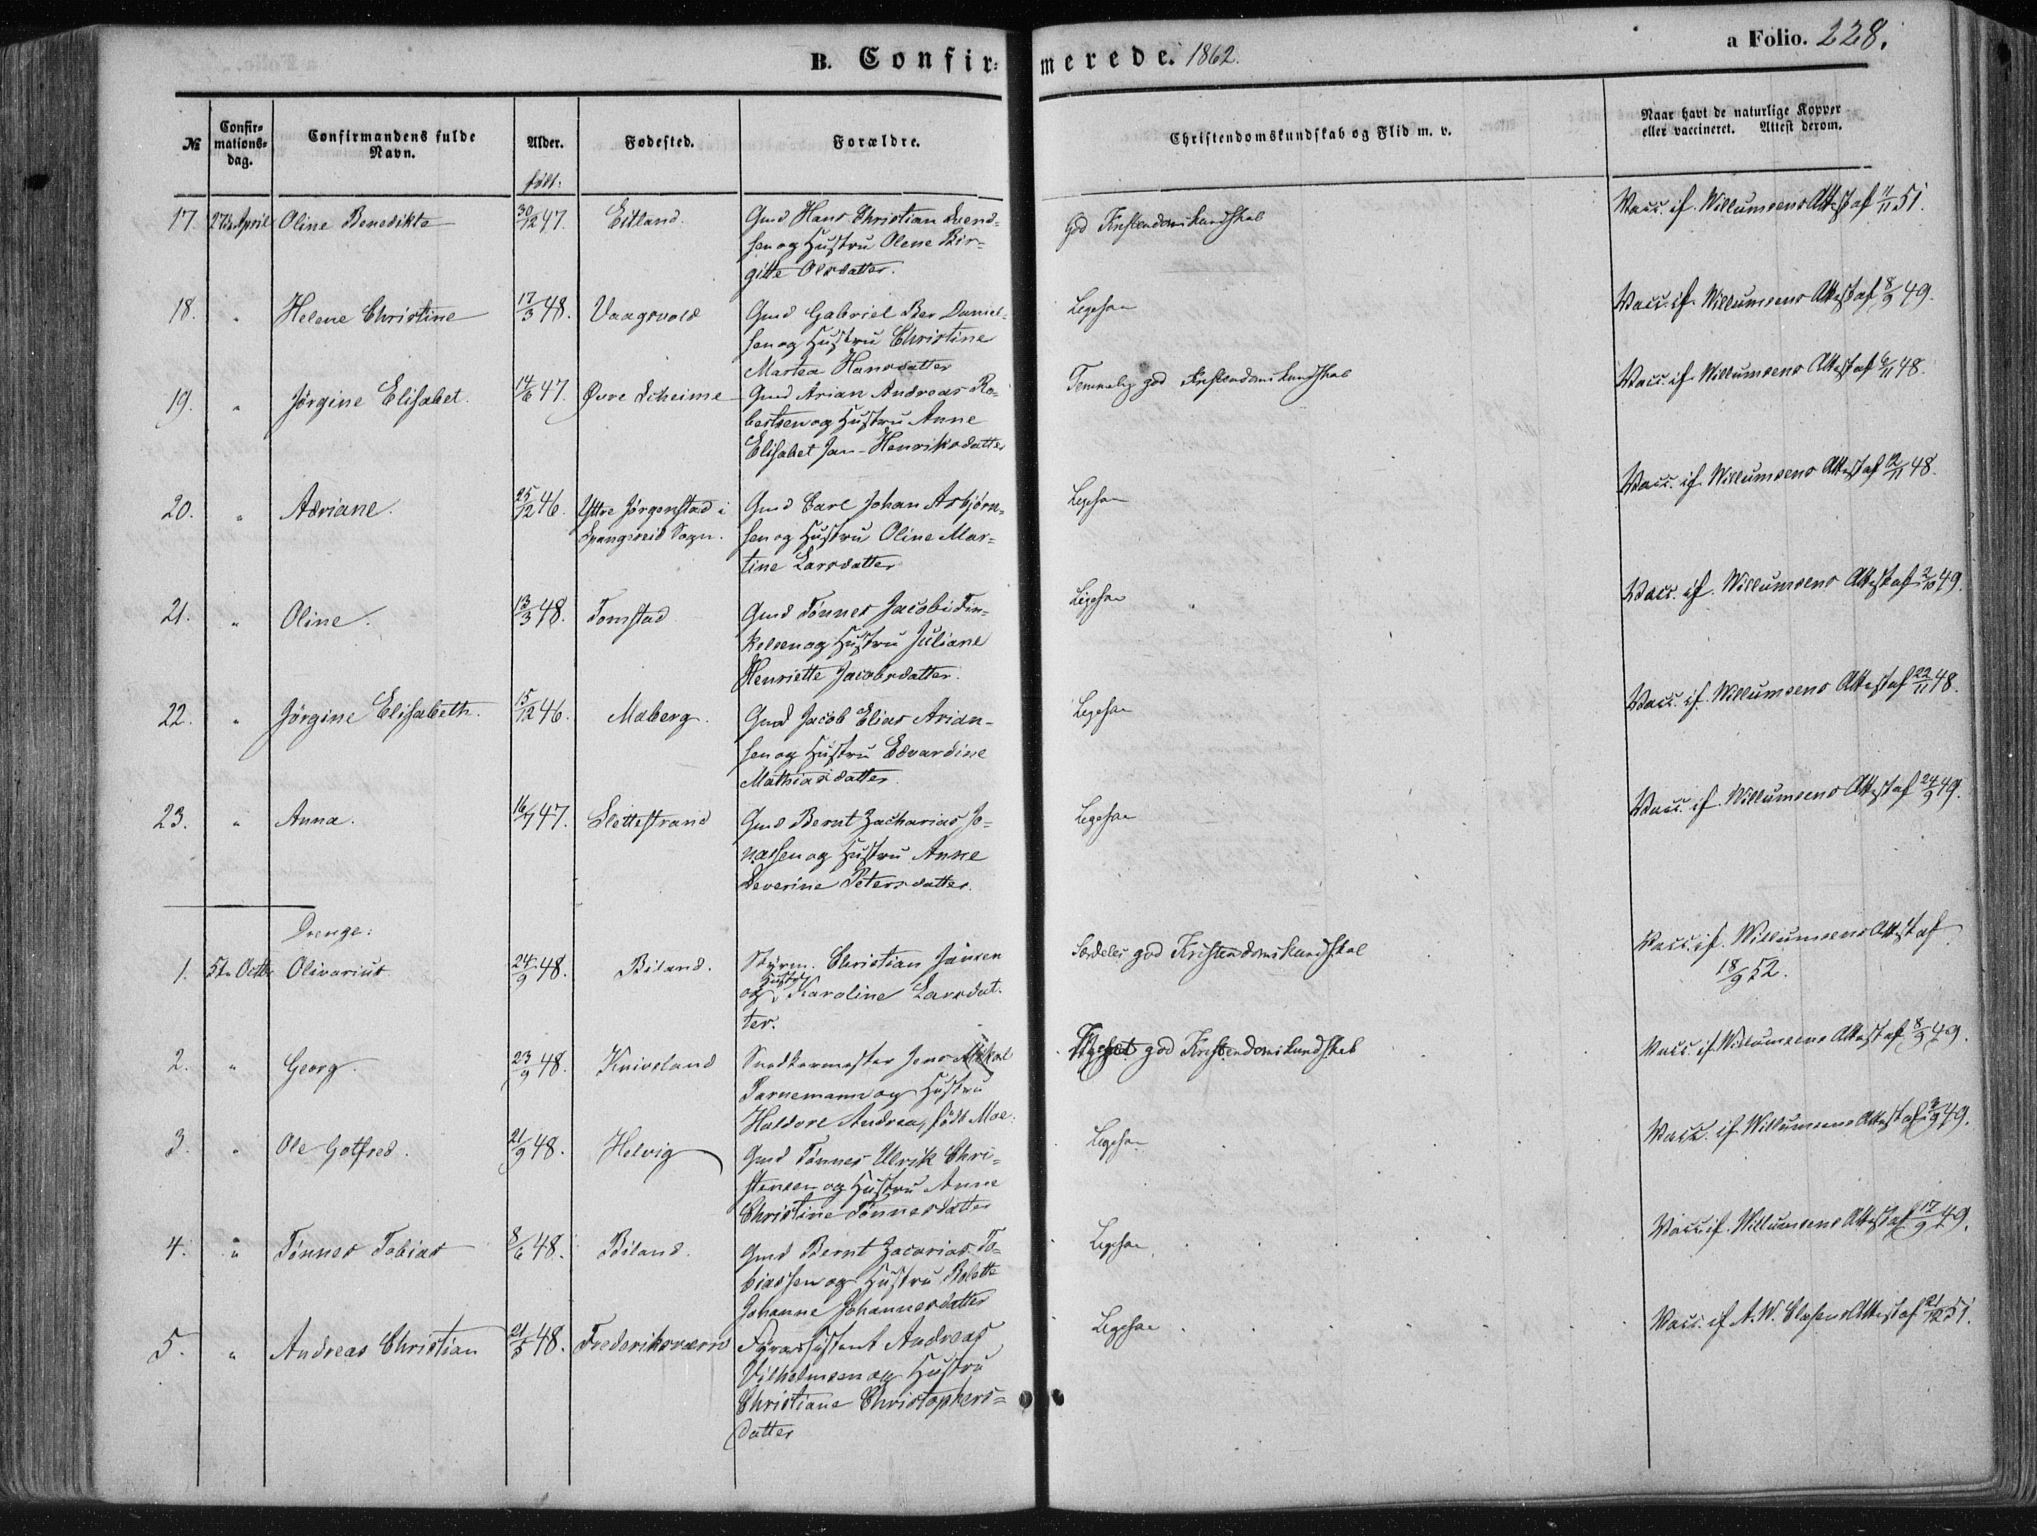 B. Confir=
merede. 1862.
a Folio. 228.
№
Confir=
mations=
dag.
Confirmandens fulde
Navn.
Alder.
Fødested.
Forældre.
Christendomskundskab og Flid m. v.
Naar havt de naturlige Kopper
eller vaccineret. Attest derom.
født:
17. 27de April Oline Benedikte 30/12 47. Eitland. Gmd Hans Christian Svend=
sen og Hustru Olene Bir=
gitte Olsdatter.
God Kristendomskundskab
Vacc. if. Willumsens Attest af 11/11 51.
18. " Helene Christine 17/3 48. Vaagsvold Gmd Gabriel Ber Daniel=
sen og Hustru Christine
Martea Hansdatter
Ligesaa
Vacc. if. Willumsens Attest af 8/9 49.
19. " Jørgine Elisabet. 14/6 47. Øvre Skeime Gmd Arian Andreas Ro=
bertsen og Hustru Anne
Elisabet Jan-Henriksdatter
Temmelig god Kristendomskundskab
Vacc. if. Willumsens Attest af 6/11 48.
20. " Adriane. 25/12 46. Yttre Jørgenstad i
Spangereid Sogn.
Gmd Carl Johan Asbjørn=
sen og Hustru Oline Mar=
tine Larsdatter
Ligesaa
Vacc. if. Willumsens Attest af 12/11 48.
21. " Oline. 13/3 48. Tomstad Gmd Tønnes Jacobi Tin=
kelsen og Hustru Juliane
Henriette Jacobsdatter.
Ligesaa
Vacc. if. Willumsens Attest af 2/10 49.
22. " Jørgine Elisabeth. 15/12 46. Maberg. Gmd Jacob Elias Arian=
sen og Hustru Edvardine
Mathiasdatter.
Ligesaa
Vacc. if. Willumsens Attest af 22/11 48.
23. " Anna. 16/7 47. Slettestrand Gmd Bernt Zacharias Jo=
nassen og Hustru Anne
Severine Petersdatter.
Ligesaa
Vacc. if. Willumsens Attest af 24/9 49.
Drenge:
1. 5te Octbr Olivarius 24/9 48. Biland. Styrm. Christian Jansen
og Hustru Karoline Larsdat=
ter.
Særdeles god Kristendomskundskab
Vacc. if. Willumsens Attest af
18/9 52.
2. " Georg. 23/9 48. Kniveland Snedkermester Jens Mikal
Parnemann og Hustru
Haldore Andrea, født Moe.
god Kristendomskundskab
Vacc. if. Willumsens Attest af 8/9 49.
3. " Ole Gotfred. 21/9 48. Helvig Gmd Tønnes Ulrik Chri=
stensen og Hustru Anne
Christine Tønnesdatter
Ligesaa
Vacc. if. Willumsens Attest af 49.
4. " Tønnes Tobias 8/6 48. Biland. Gmd Bernt Zacarias To=
biassen og Hustru Bolette
Johanne Johannesdatter
Ligesaa
Vacc. if. Willumsens Attest af 17/9 49.
5. " Andreas Christian 21/5 48. Frederiksværn Fyrassistent Andreas
Vilhelmsen og Hustru
Christiane Christophers=
datter
Ligesaa
Vacc. if A. W. Clasens Attest af 21/12 51.